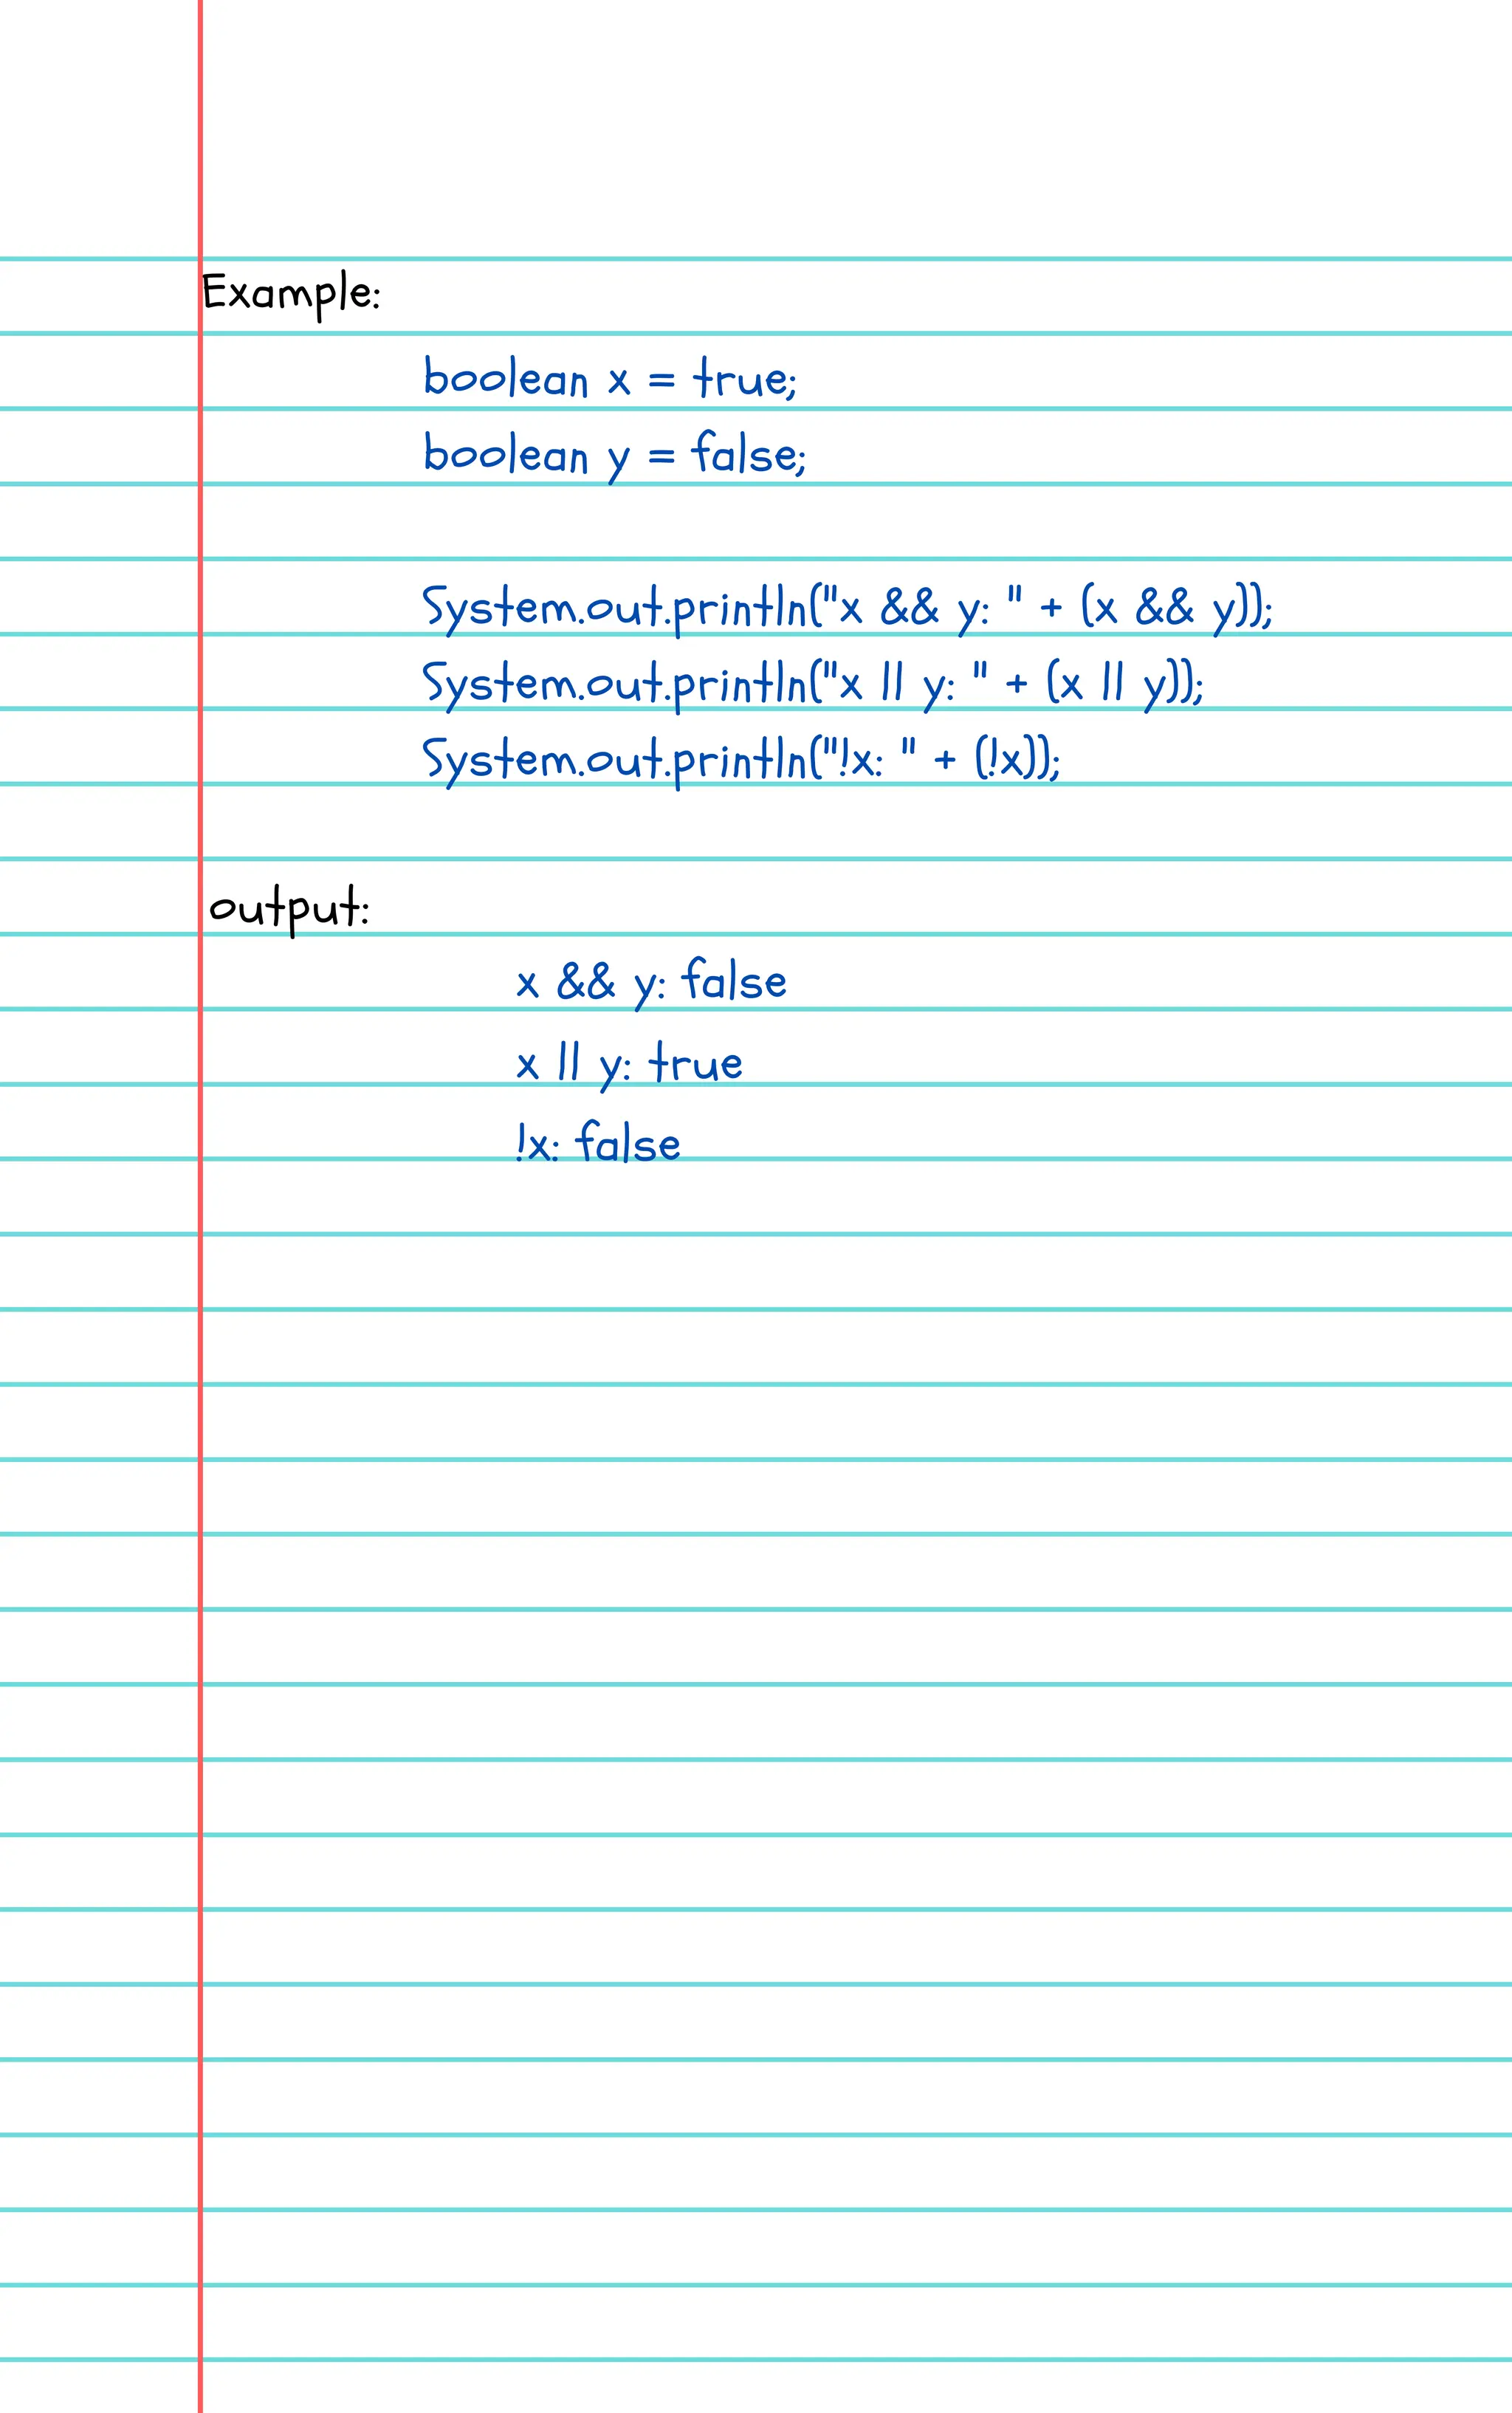 Example:
boolean x = true;
boolean y = false;
System.out.println("x && y: " + (x && y));
System.out.println("x || y: " + (x || y));
System.out.println("!x: " + (!x));
output:
x && y: false
x || y: true
!x: false